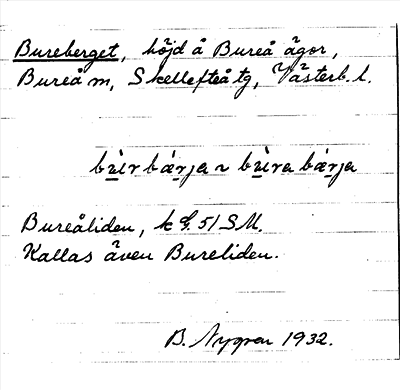 Bureberget, höjd å Bureå ägor,
Bureå m, Skellefteå tg, Västerb. l.
Bureåliden, k G. 51 SM.
Kallas även Bureliden.
B. Nygren 1932.